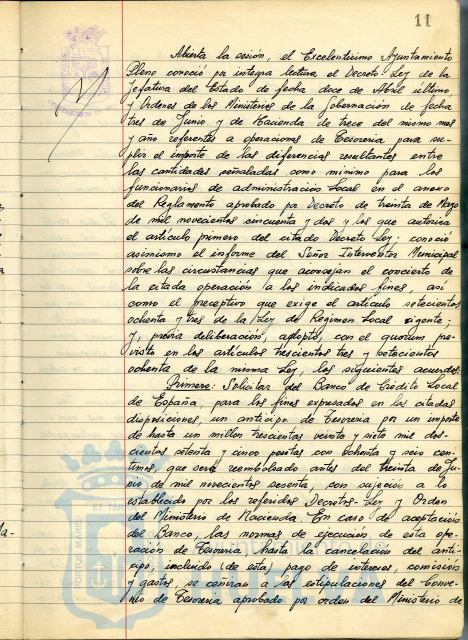 11
Abierta la sesión, el Excelentísimo Ayuntamiento
Pleno conoció pa integra lectura el Decreto Ley de la
Jefatura del Estado de fecha doce de Abril último,
y Ordenes de los Ministerios de la Gobernación de fecha
tres de Junio y de Hacienda de trece del mismo mes
y año referentes a operaciones de Tesoreria para su-
plir el importe de las diferencias resultantes entre
las cantidades señaladas como minimo para los
funcionarios de administración Local en el anexo
del Reglamento aprobado pa Decreto de treinta de Mayo
de mil novecientos cincuenta y dos y los que autoriza
el artículo primero del citado Decreto Ley; conoció
asimismo el informe del Señor Interventor Municipal
sobre las circustancias que aconsejan el concierto de
la citada operación a los indicados fines, así
como el preceptivo que exige el artículo setecientos
ochenta y tres de la Ley de Regimen Local vigente;
y, previa deliberación, adoptó, con el quorum pre-
visto en los artículos trescientos tres y setecientos
ochenta de la misma Ley, los siguientes acuerdos:
Primero: Solicitar del Banco de Crédito Local
de España, para los fines expresados en las citadas
disposiciones, un anticipo de Tesoreria por un importe
de hasta un millon trescientas veinte y siete mil dos-
cientas setenta y cinco pesetas con ochenta y seis cen-
timos, que será reembolsado antes del treinta de Ju-
nio de mil novecientos sesenta, con sujeción a lo
establecido por los referidos Decretos-Ley y Orden
del Ministerio de Hacienda. En caso de aceptación
del Banco, las normas de ejecución de esta ope-
ración de Tesoreria, hasta la cancelación del anti-
cipo, incluido (de esta) pago de intereses, comisión
y gastos, se ceñiran a las estipulaciones del Conve-
nio de Tesoreria aprobado por orden del Ministerio de